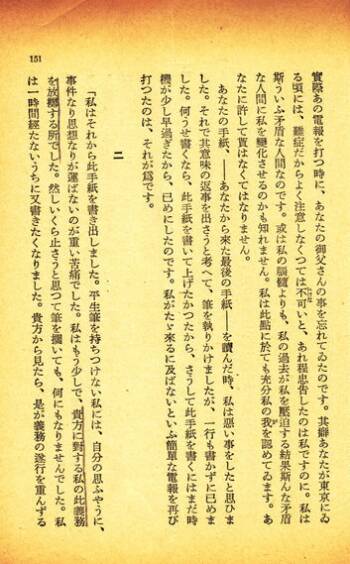 151
實際あの電報を打つ時に、あなたの御父さんの事を忘れてゐたのです。其癖あなたが東京にゐ
る頃には、難症だからよく注意しなくつては不可いと、あれ程忠告したのは私ですのに。私は
斯ういふ矛盾な人間なのです。或は私の腦髓よりも、私の過去が私を壓迫する結果斯んな矛盾
な人間に私を變化させるのかも知れません。私は此點に於ても充分私の我を認めてゐます。あ
なたに許して貰はなくてはなりません。
あなたの手紙、――あなたから來た最後の手紙――を讀んだ時、私は惡い事をしたと思ひま
した。それで其意味の返事を出さうと考へて、筆を執りかけましたが、一行も書かずに已めま
した。何うせ書くなら、此手紙を書いて上げたかつたから、さうして此手紙を書くにはまだ時
機が少し早過ぎたから、已めにしたのです。私がたゞ來るに及ばないといふ簡單な電報を再び
打つたのは、それが爲です。
二
「私はそれから此手紙を書き出しました。平生筆を持ちつけない私には、自分の思ふやうに、
事件なり思想なりが運ばないのが重い苦痛でした。私はもう少しで、貴方に對する私の此義務
を放擲する所でした。然しいくら止さうと思つて筆を擱いても、何にもなりませんでした。私
は一時間經たないうちに又書きたくなりました。貴方から見たら、是が義務の遂行を重んずる